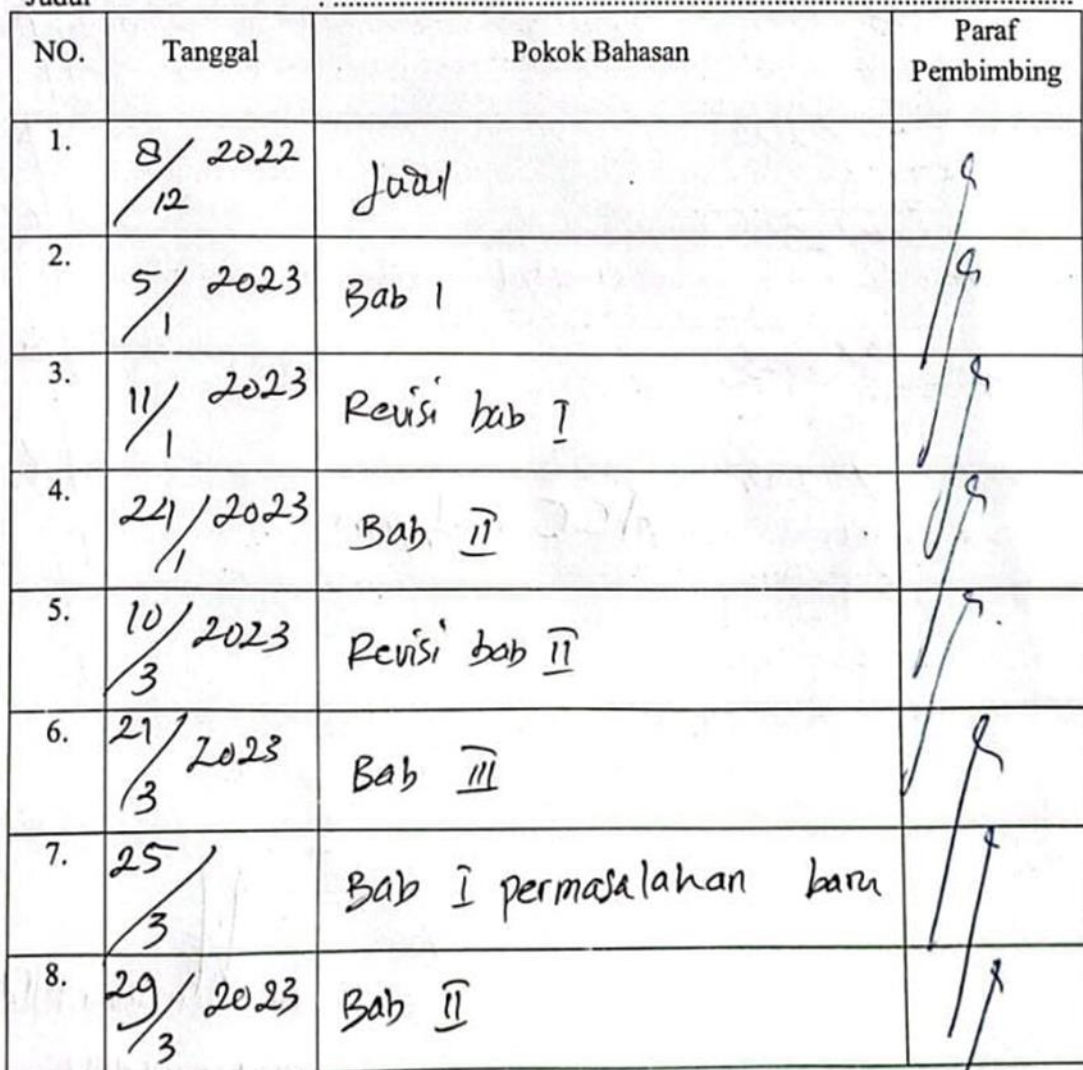 Judul : ....................
NO. Tanggal Pokok Bahasan Paraf Pembimbing
1. 8/12 2022 Judul
2. 5/1 2023 Bab 1
3. 11/1 2023 Revisi bab I
4. 24/1 2023 Bab II
5. 10/3 2023 Revisi bab II
6. 21/3 2023 Bab III
7. 25/3 Bab I permasalahan baru
8. 29/3 2023 Bab II